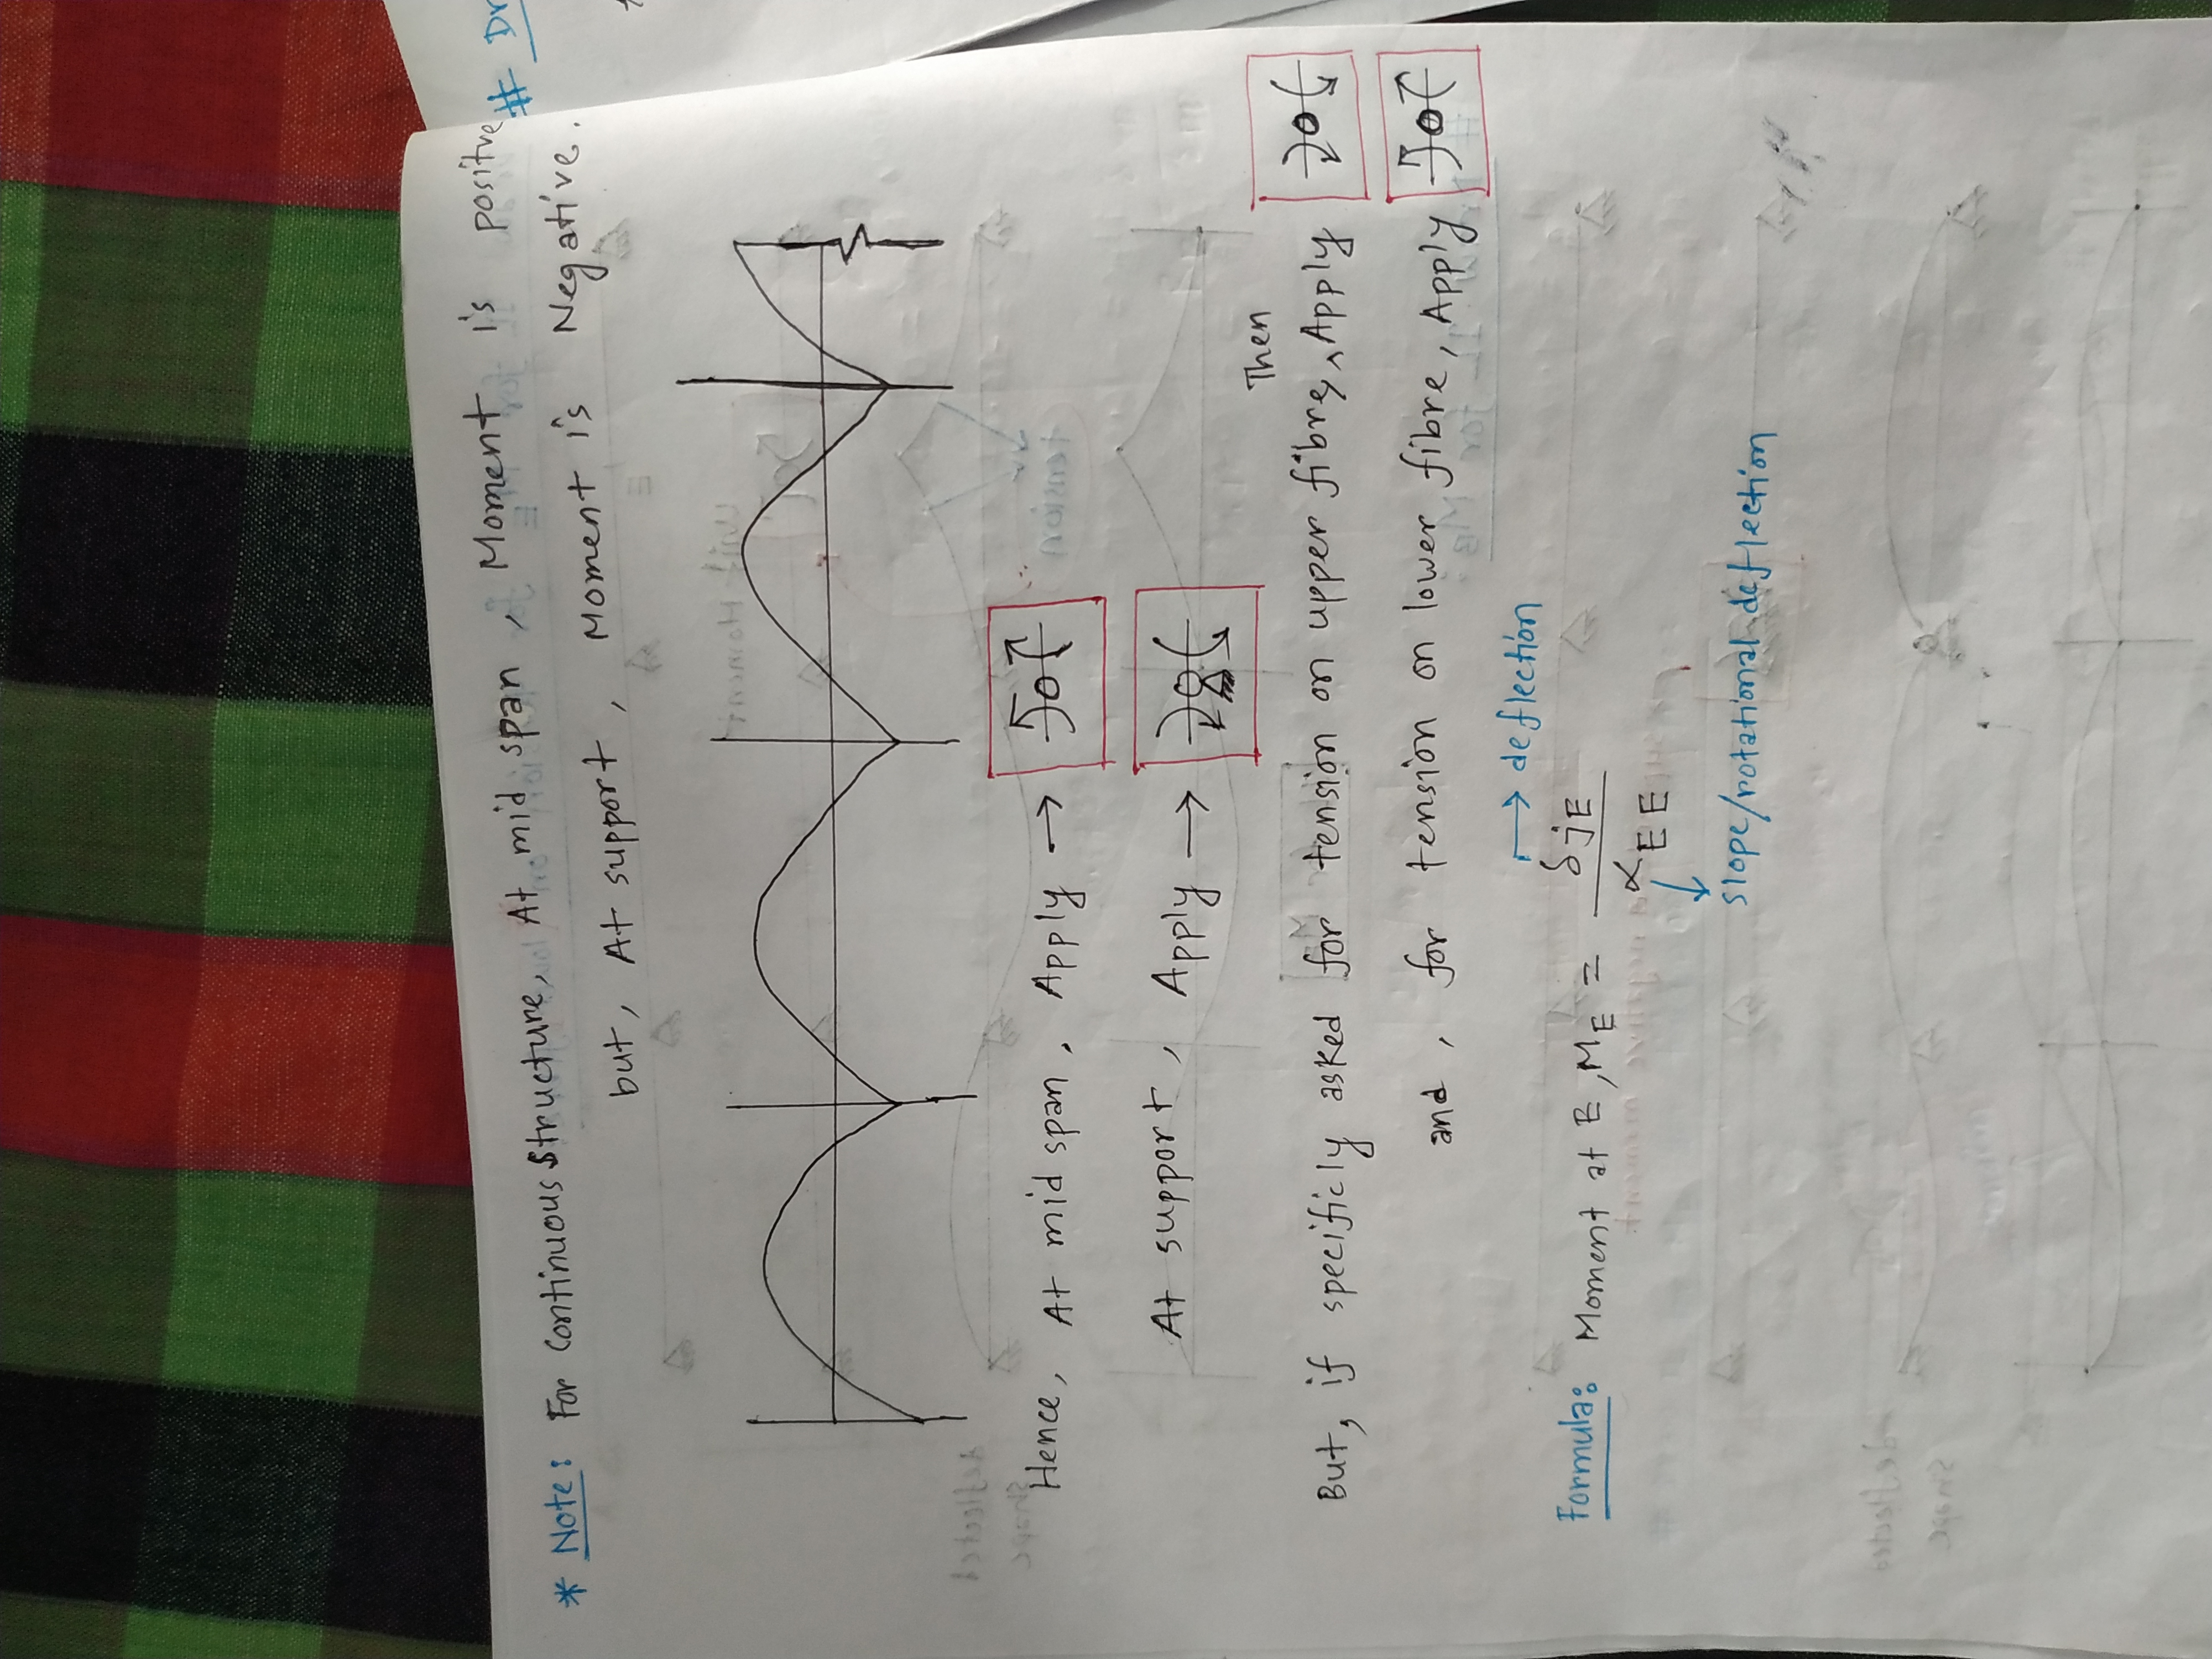 # Dr
* Note: For continuous structure, At mid span, Moment is positive
but, At support, Moment is Negative.
Hence, At mid span, Apply →
At support, Apply →
Then
But, if specificly asked for tension on upper fibre, ^ Apply
and, for tension on lower fibre, Apply
→ deflection
Formula: Moment at E, M_E = δjE / αEE
slope/rotational deflection